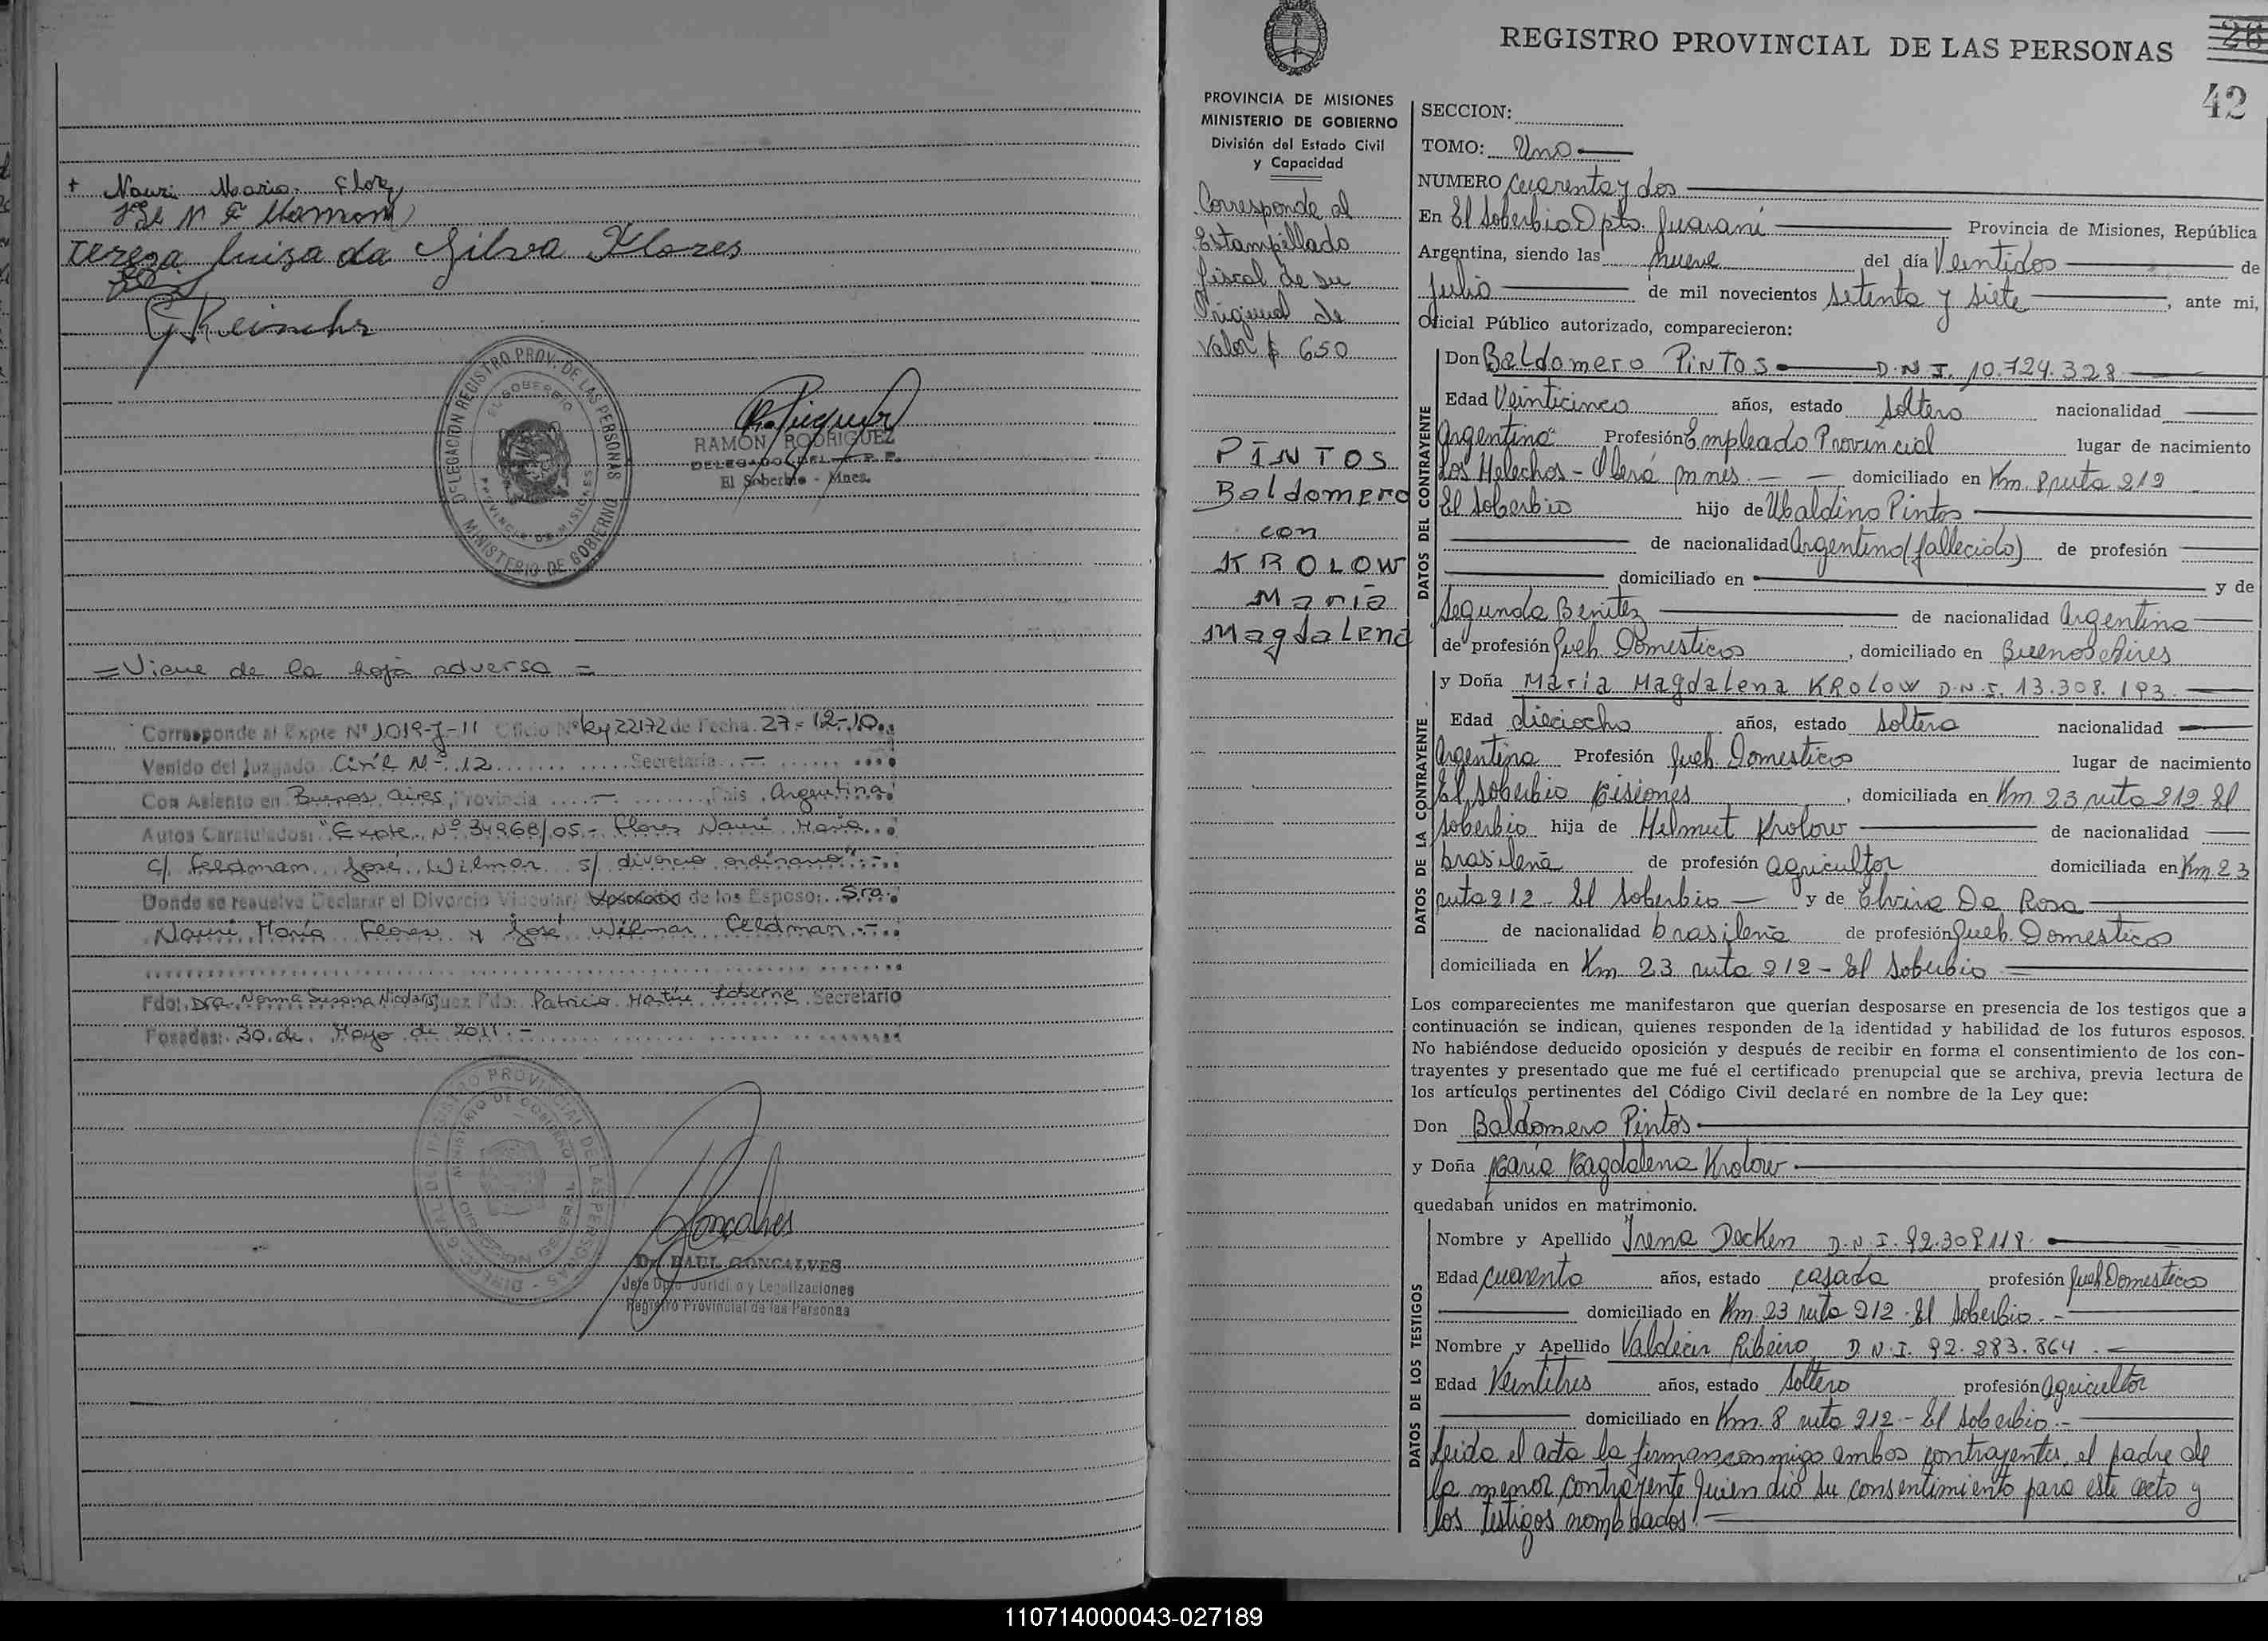 + Nauri Maria Flor
Teresa luiza da Silva Flores
DELEGACION REGISTRO PROV. DE LAS PERSONAS
EL SOBERBIO
PROVINCIA DE MISIONES
MINISTERIO DE GOBIERNO
RAMON RODRIGUEZ
DELEGADO DEL R. P. P.
El Soberbio - Mnes.
= Viene de la hoja adversa =
Corresponde al Expte Nº 1019-J-11 Oficio Nº Ley 22172 de Fecha 27-12-10
Venido del Juzgado Civil Nº 12 Secretaría -
Con Asiento en Buenos Aires, Provincia - , País Argentina
Autos Caratulados: "Expte. Nº 34968/05 - Flores Nauri María
c/ Feldman José Wilmar s/ divorcio ordinario" -
Donde se resuelve Declarar el Divorcio Vincular de los Esposo: Sra.
Nauri María Flores y José Wilmar Feldman -
Fdo: Dra. Norma Susana Nicolaris Juez Fdo: Patricio Martín Secretario
Posadas: 30 de Mayo de 2011.-
Goncalves
Dr. RAUL GONCALVES
Jefe Dpto Jurídico y Legalizaciones
Registro Provincial de las Personas
REGISTRO PROVINCIAL DE LAS PERSONAS
42
PROVINCIA DE MISIONES
MINISTERIO DE GOBIERNO
División del Estado Civil
y Capacidad
Corresponde al
Estampillado
fiscal de su
Original de
Valor $ 650
PINTOS
Baldomero
con
KROLOW
María
Magdalena
SECCION:
TOMO: Uno
NUMERO Cuarenta y dos
En El Soberbio Dpto. Guaraní Provincia de Misiones, República
Argentina, siendo las nueve del día Veintidos de
Julio de mil novecientos setenta y siete, ante mi,
Oficial Público autorizado, comparecieron:
DATOS DEL CONTRAYENTE
Don Baldomero PINTOS D.N.I. 10.724.328
Edad Veinticinco años, estado soltero nacionalidad
Argentina Profesión Empleado Provincial lugar de nacimiento
Los Helechos - Oberá Mnes. domiciliado en Km. 8 ruta 212
El Soberbio hijo de Ubaldino Pintos
de nacionalidad Argentino (fallecido) de profesión
domiciliado en y de
Segunda Benitez de nacionalidad Argentina
de profesión Queh. Domesticos, domiciliado en Buenos Aires
DATOS DE LA CONTRAYENTE
y Doña María Magdalena KROLOW D.N.I. 13.308.193
Edad dieciocho años, estado soltera nacionalidad
Argentina Profesión Queh. Domesticos lugar de nacimiento
El Soberbio Misiones, domiciliada en Km 23 ruta 212 El
Soberbio hija de Helmut Krolow de nacionalidad
brasileña de profesión agricultor domiciliada en Km 23
ruta 212 - El Soberbio y de Elvira Da Rosa
de nacionalidad brasileña de profesión Queh. Domesticos
domiciliada en Km 23 ruta 212 - El Soberbio
Los comparecientes me manifestaron que querían desposarse en presencia de los testigos que a
continuación se indican, quienes responden de la identidad y habilidad de los futuros esposos.
No habiéndose deducido oposición y después de recibir en forma el consentimiento de los con-
trayentes y presentado que me fué el certificado prenupcial que se archiva, previa lectura de
los artículos pertinentes del Código Civil declaré en nombre de la Ley que:
Don Baldomero Pintos
y Doña María Magdalena Krolow
quedaban unidos en matrimonio.
DATOS DE LOS TESTIGOS
Nombre y Apellido Irena Decken D.N.I. 92.309.118
Edad Cuarenta años, estado casada profesión Queh. Domesticos
domiciliado en Km. 23 ruta 212 - El Soberbio.-
Nombre y Apellido Valdecir Ribeiro D.N.I. 92.283.864
Edad Veintitres años, estado soltero profesión agricultor
domiciliado en Km. 8 ruta 212 - El Soberbio.-
Leida el acta la firman conmigo ambos contrayentes, el padre de
la menor contrayente quien dió su consentimiento para este acto y
los testigos nombrados.
110714000043-027189